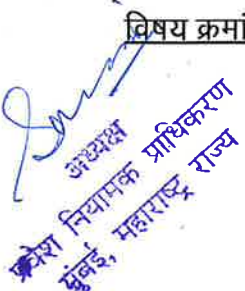 विषय क्रमां
अध्यक्ष
प्रवेश नियामक प्राधिकरण
मुंबई, महाराष्ट्र राज्य